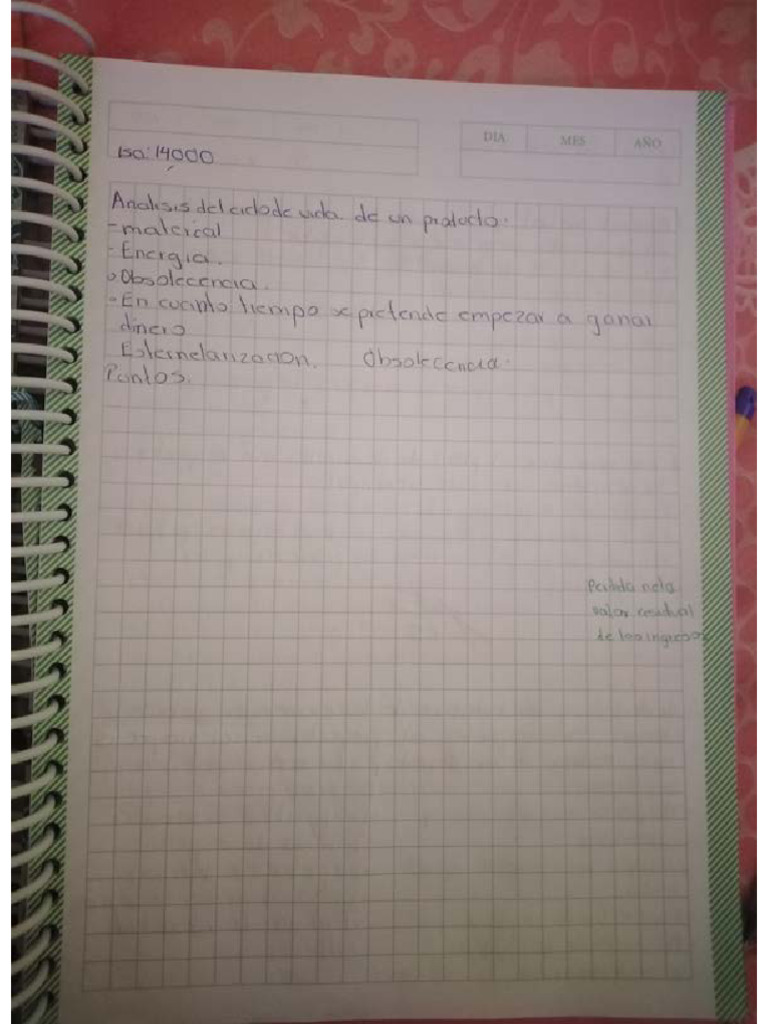 DIA MES AÑO
ISO: 14000
Analisis del ciclo de vida de un producto.
- material
- Energia.
- Obsolecencia.
- En cuanto tiempo se pretende empezar a ganar
dinero
Obsolecencia.
Puntos.
neta
valor residual
de los ingresos